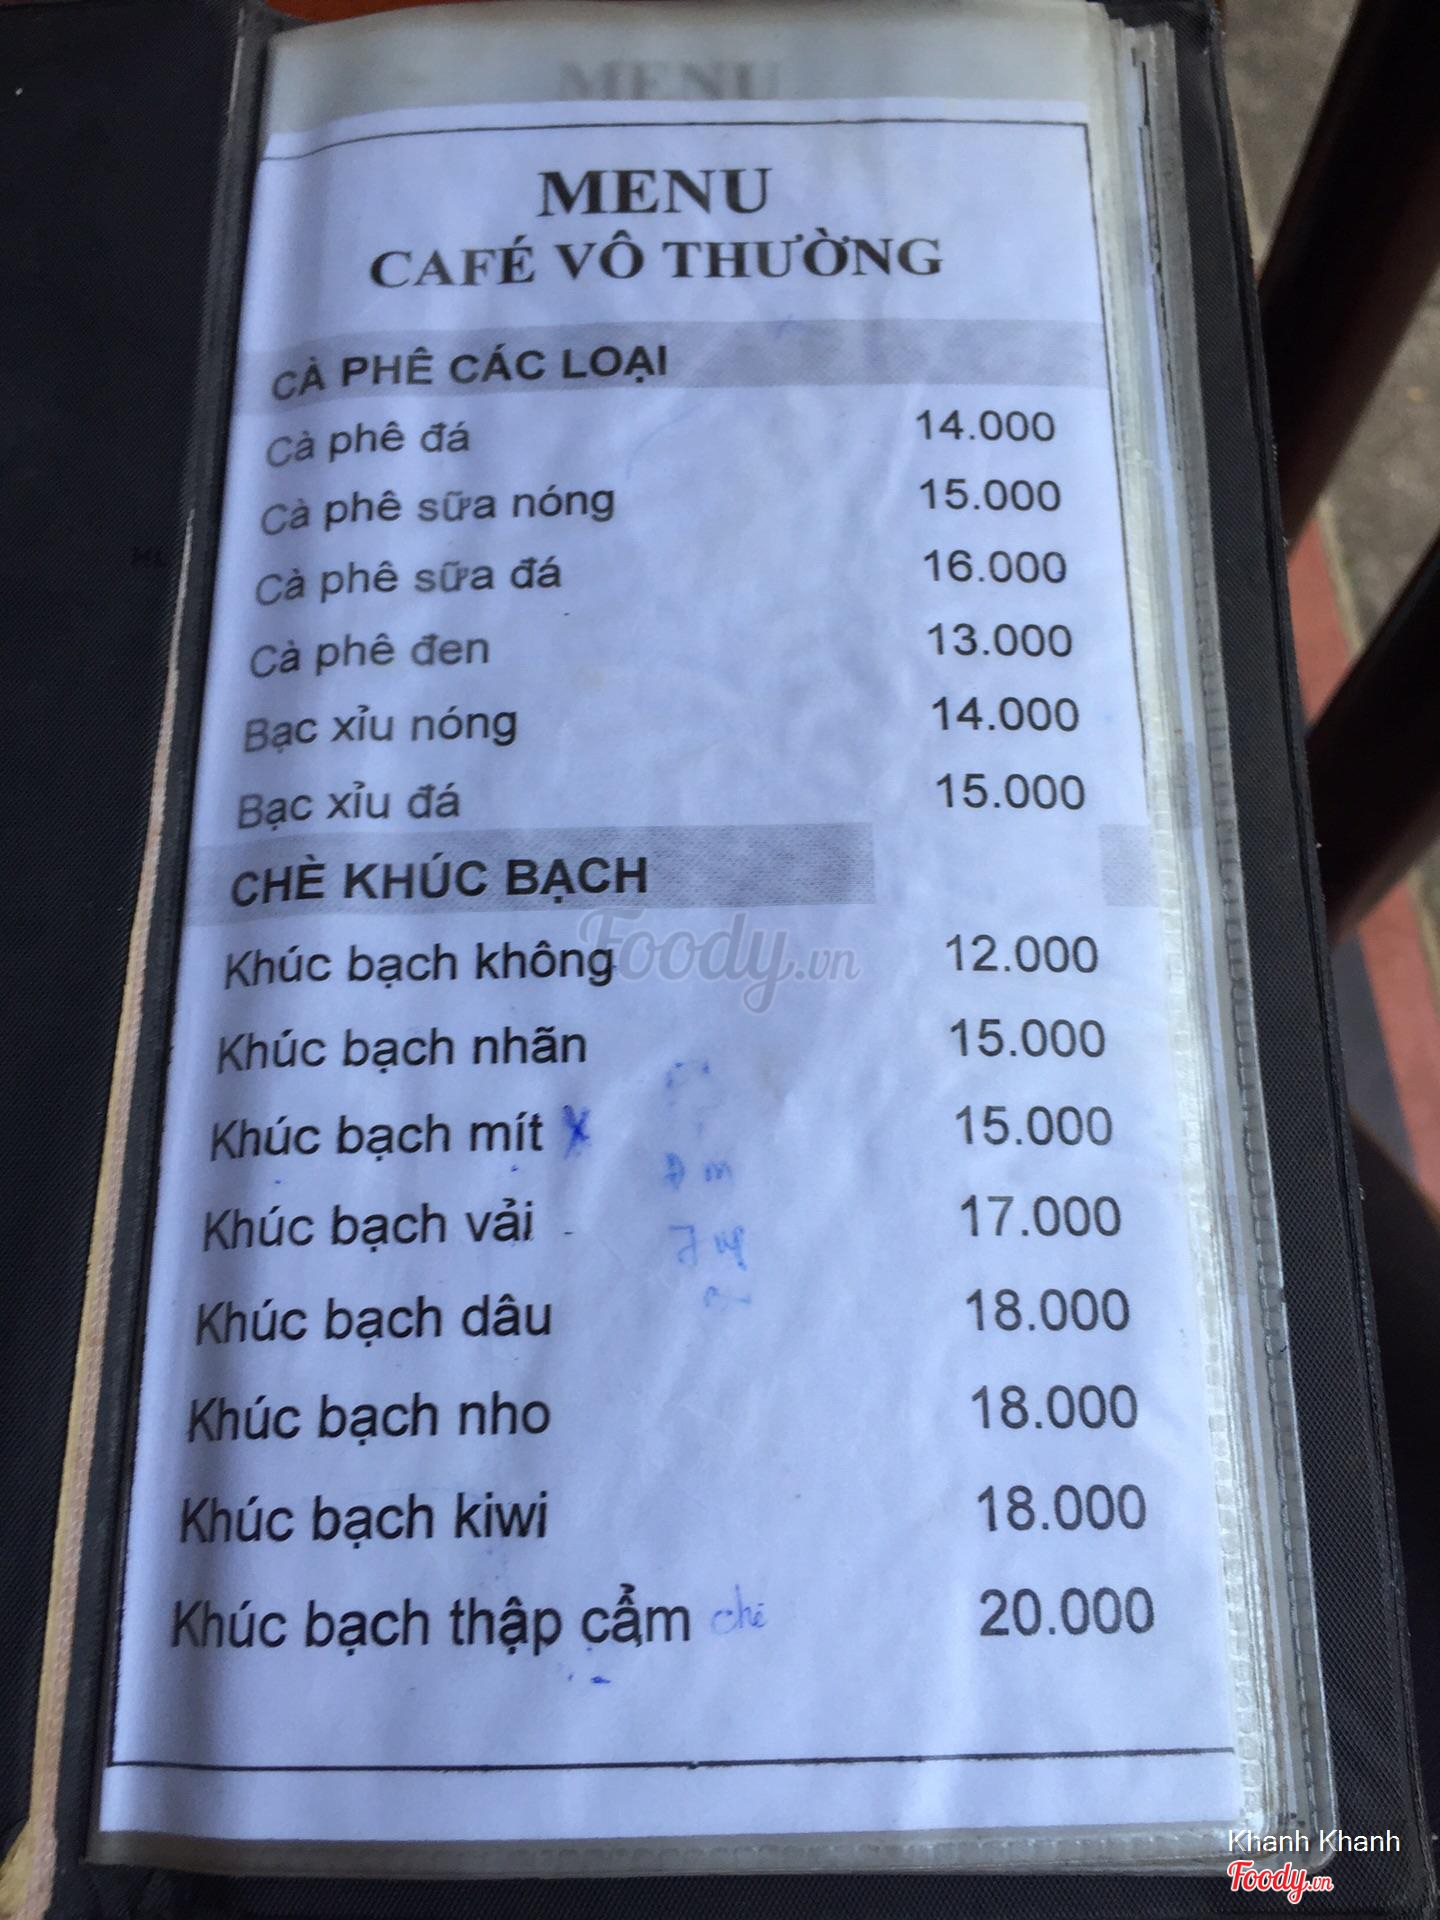 MENU
MENU
CAFÉ VÔ THƯỜNG
CÀ PHÊ CÁC LOẠI
Cà phê đá 14.000
Cà phê sữa nóng 15.000
Cà phê sữa đá 16.000
Cà phê đen 13.000
Bạc xỉu nóng 14.000
Bạc xỉu đá 15.000
CHÈ KHÚC BẠCH
Foody.vn
Khúc bạch không 12.000
Khúc bạch nhãn 15.000
Khúc bạch mít x 15.000
Khúc bạch vải 17.000
Khúc bạch dâu 18.000
Khúc bạch nho 18.000
Khúc bạch kiwi 18.000
Khúc bạch thập cẩm 20.000
Khanh Khanh
Foody.vn